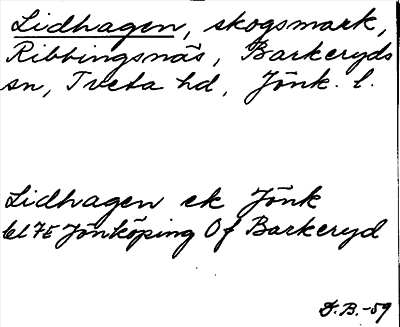 Lidhagen, skogsmark,
Ribbingsnäs, Barkeryds
sn, Tveta hd, Jönk. l.
Lidhagen ek Jönk
bl 7E Jönköping Of Barkeryd
D.B.-59